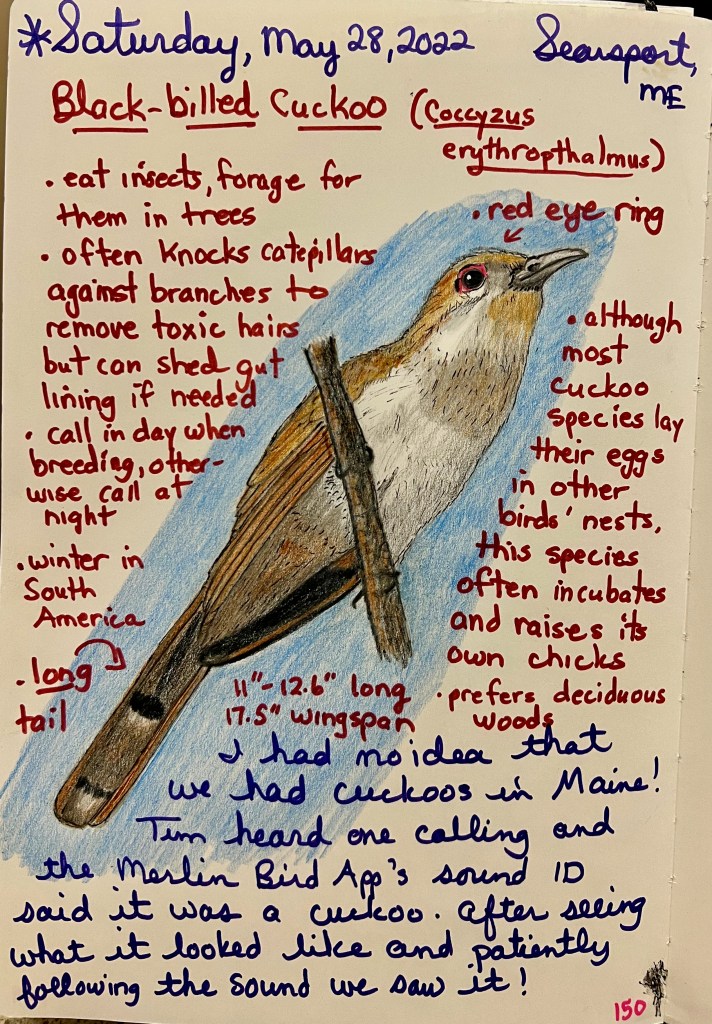 *Saturday, May 28, 2022
Searsport,
ME
Black-billed Cuckoo (Coccyzus
erythropthalmus)
• eat insects, forage for
them in trees
• often knocks catepillars
against branches to
remove toxic hairs
but can shed gut
lining if needed
• call in day when
breeding, other-
wise call at
night
• winter in
South
America
• long
tail
• red eye ring
• although
most
cuckoo
species lay
their eggs
in other
birds' nests,
this species
often incubates
and raises its
own chicks
• prefers deciduous
woods
11"-12.6" long
17.5" wingspan
I had no idea that
we had cuckoos in Maine!
Tim heard one calling and
the Merlin Bird App's sound ID
said it was a cuckoo. After seeing
what it looked like and patiently
following the sound we saw it!
150